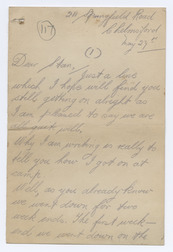 211 Springfield Road
Chelmsford
May 27th
(1)
Dear Stan,
Just a line
which I hope will find you
still getting on alright as
I am pleased to say we are
well.
Why I am writing is really to
tell you how I got on at
camp.
Well, as you already know
we went down for two
week ends. The first week-
end we went down on the